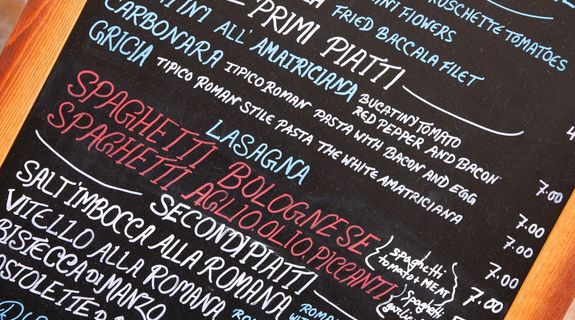 BRUSCHETTE TOMATOES
INI FLOWERS
FRIED BACCALA FILET
PRIMI PIATTI
TINI ALL'AMATRICIANA BUCATINI TOMATO
RED PEPPER AND BACON
CARBONARA TIPICO ROMAN PASTA WITH BACON AND EGG 7.00
GRICIA TIPICO ROMAN STILE PASTA THE WHITE AMATRICIANA 7.00
LASAGNA 7.00
SPAGHETTI BOLOGNESE (spaghetti tomato + MEAT) 7.00
SPAGHETTI AGLIO, OLIO, PICCANTI (spaghetti garlic 7.00
SECONDI PIATTI
SALT'IMBOCCA ALLA ROMANA
VITELLO ALLA ROMANA ROMAN
BISTECCA DI MANZO